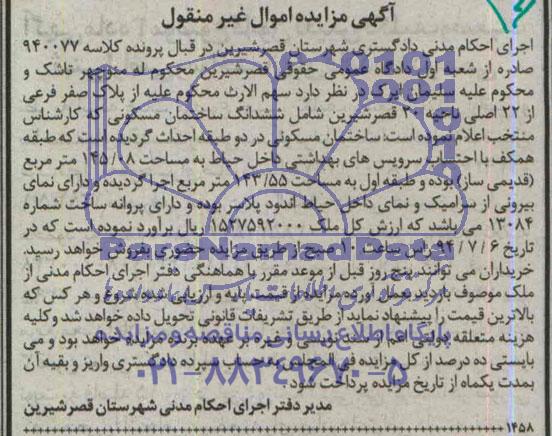 آگهی مزایده اموال غیر منقول
اجرای احکام مدنی دادگستری شهرستان قصرشیرین در قبال پرونده کلاسه ۹۴۰۰۷۷
صادره از شعبه اول دادگاه عمومی حقوقی قصرشیرین محکوم له منوچهر تاشک و
محکوم علیه سلیمان در نظر دارد سهم الارث محکوم علیه از پلاک صفر فرعی
از ۲۲ اصلی ناحیه ۳۰ قصرشیرین شامل ششدانگ ساختمان مسکونی که کارشناس
منتخب اعلام نموده است: ساختمان مسکونی در دو طبقه احداث گردیده است که طبقه
همکف با احتساب سرویس های بهداشتی داخل حیاط به مساحت ۱۴۵/۰۸ متر مربع
(قدیمی ساز) بوده و طبقه اول به مساحت ۱۴۳/۵۵ متر مربع اجرا گردیده و دارای نمای
بیرونی از سرامیک و نمای داخل حیاط اندود پلاستر بوده و دارای پروانه ساخت شماره
۱۳۰۸۴ می باشد که ارزش کل ملک ۱۵۳۷۵۹۲۰۰۰ ریال برآورد نموده است که در
تاریخ ۹۴/۷/۶ راس ساعت ۱۰ صبح از طریق مزایده حضوری بفروش خواهد رسید.
خریداران می توانند پنج روز قبل از موعد مقرر با هماهنگی دفتر اجرای احکام مدنی از
ملک موصوف بازدید بعمل آورده مزایده از قیمت پایه و ارزیابی شده شروع و هر کس که
بالاترین قیمت را پیشنهاد نماید از طریق تشریفات قانونی تحویل داده خواهد شد و کلیه
هزینه متعلقه دولتی اعم از سند نویسی و غیره بر عهده برنده مزایده خواهد بود و می
بایستی ده درصد از کل مزایده فی المجلس به حساب سپرده دادگستری واریز و بقیه آن
بمدت یکماه از تاریخ مزایده پرداخت شود.
مدیر دفتر اجرای احکام مدنی شهرستان قصرشیرین
۱۴۵۸
ParsNamadData
پایگاه اطلاع رسانی مناقصه و مزایده
۰۲۱-۸۸۳۴۹۶۷۰-۵